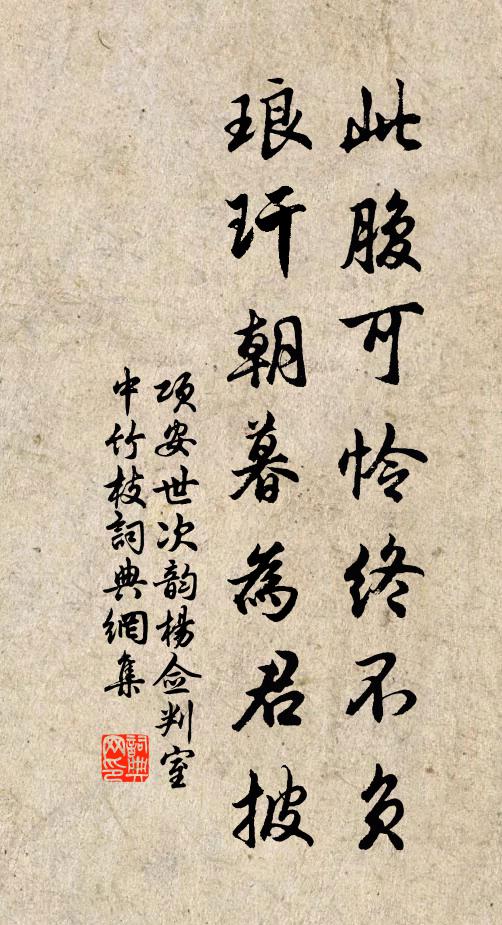 此腹可怜终不负
琅玕朝暮為君披
项安世次韵楊佥判室
中竹枝詞典網集
詞典
网印